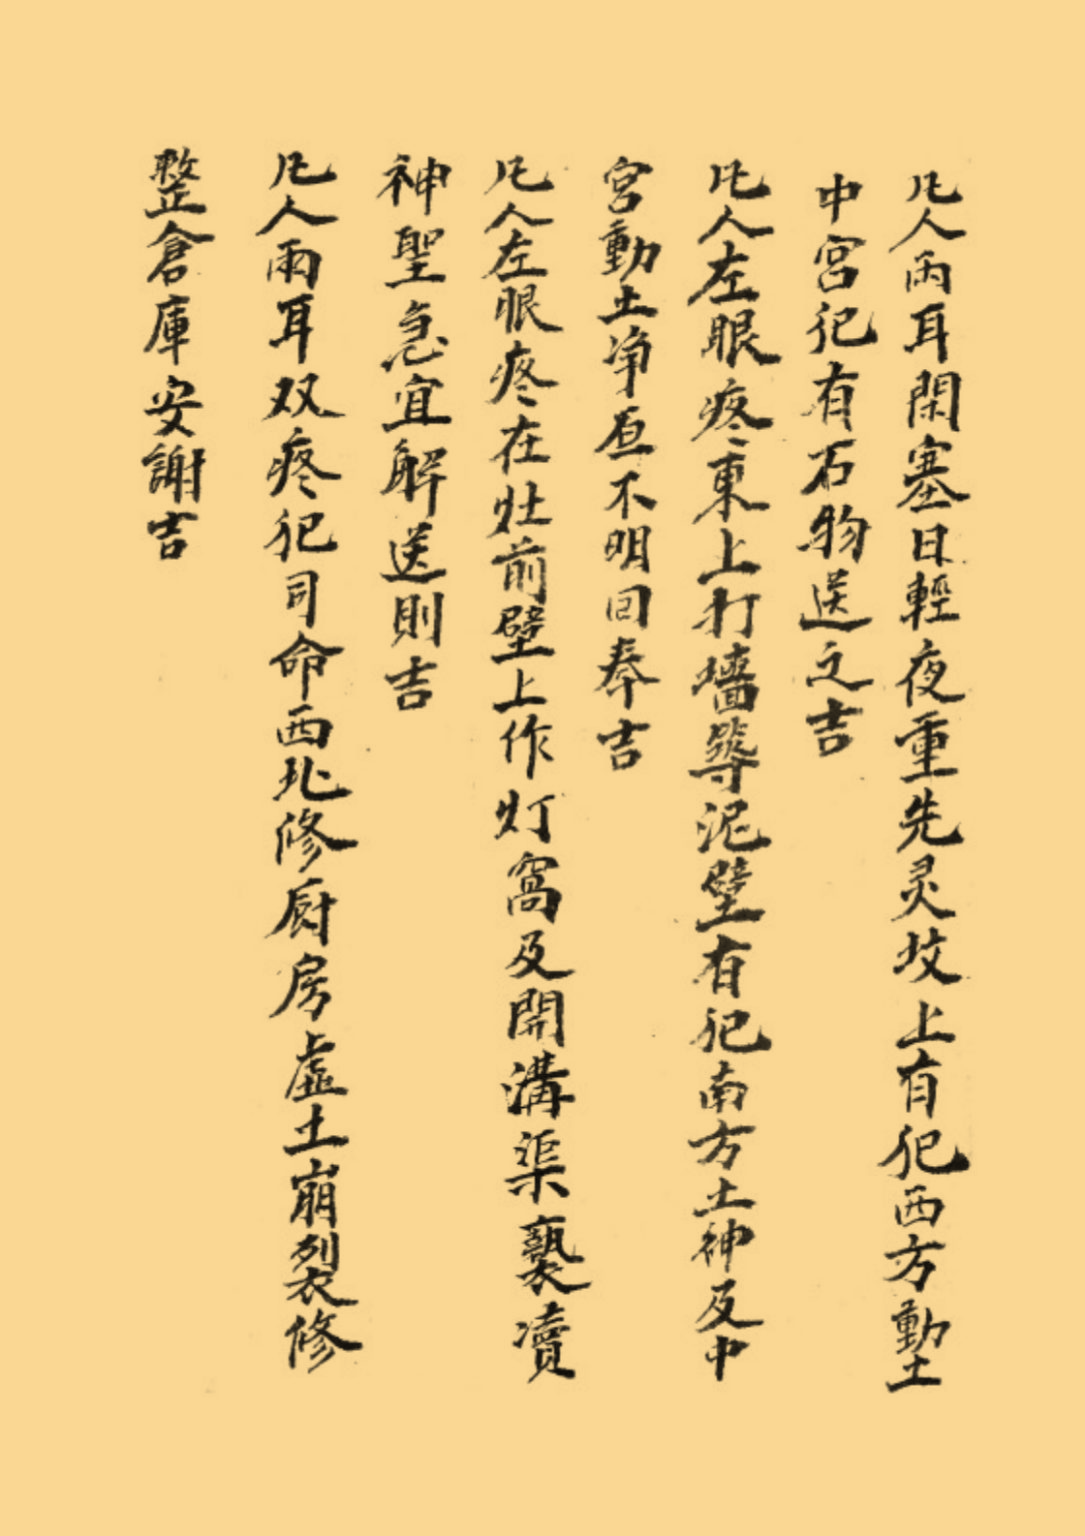 凡人兩耳閉塞日輕夜重先灵坟上有犯西方動土
中宮犯有石物送之吉
凡人左眼疼東上打墻築泥壁有犯南方土神及中
宮動土净宅不明回奉吉
凡人左眼疼在灶前壁上作灯窩及開溝渠褻瀆
神聖急宜解送則吉
凡人兩耳双疼犯司命西北修厨房虛土崩裂修
整倉庫安謝吉